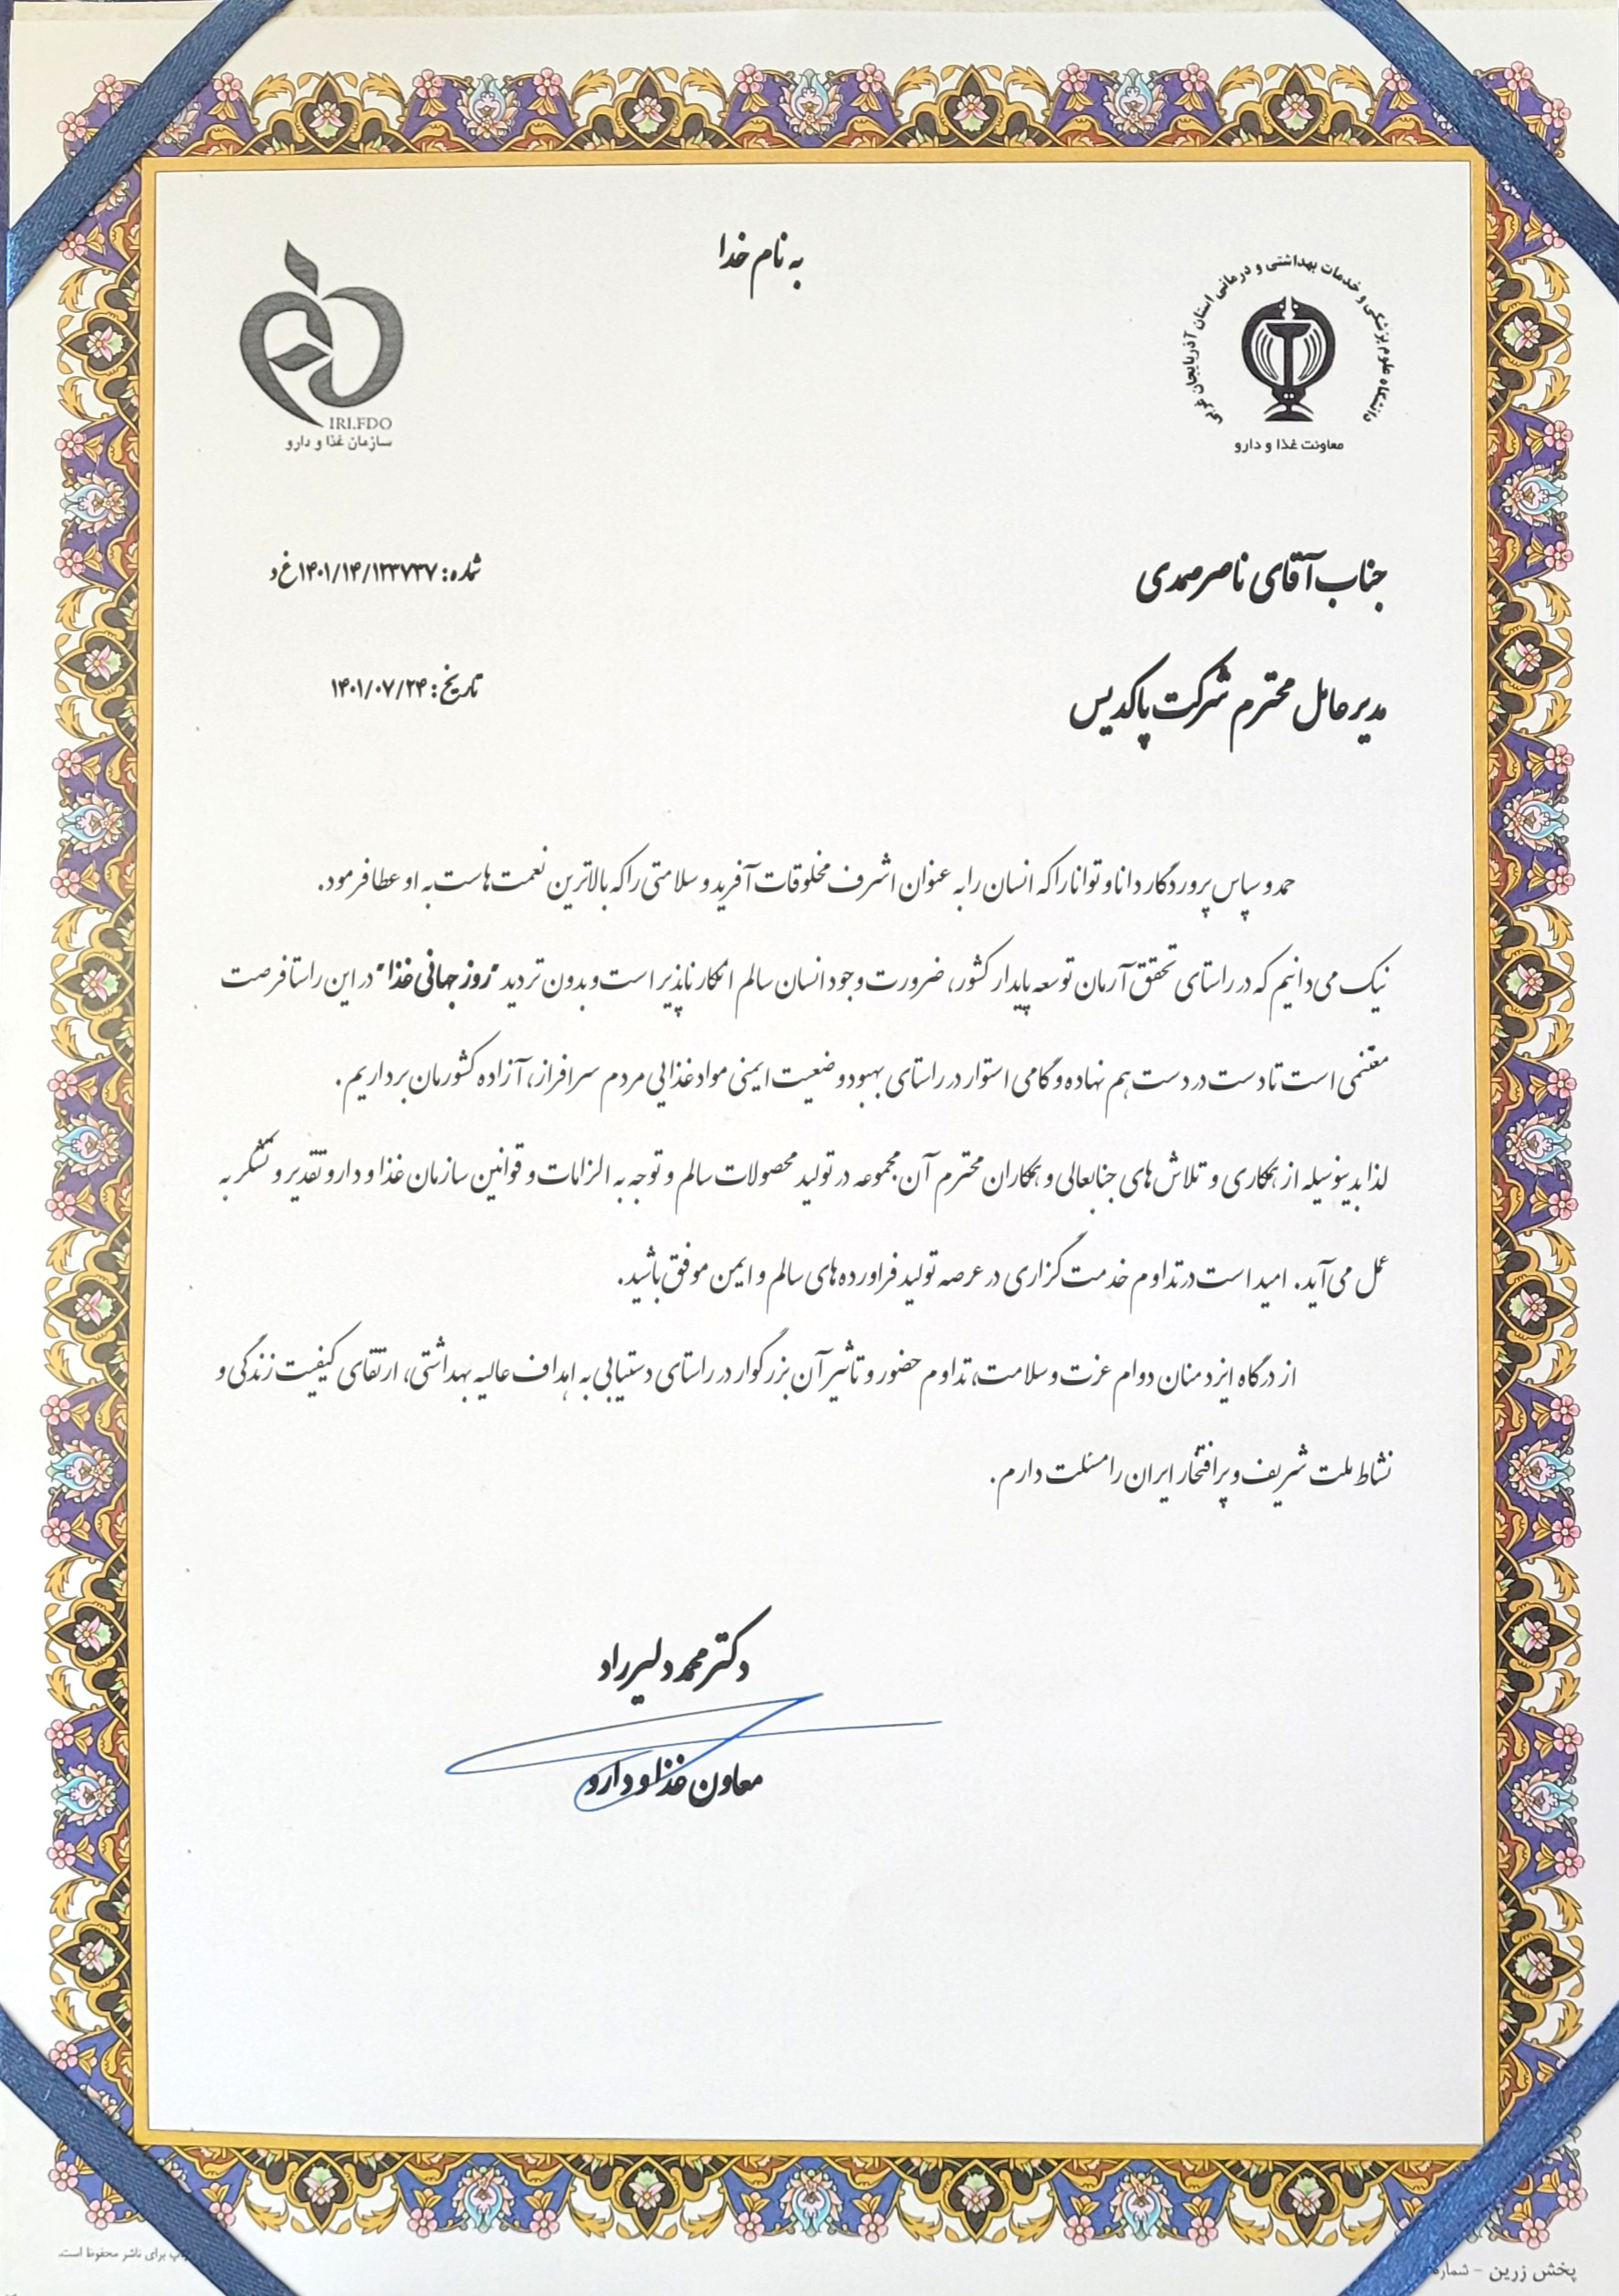 به نام خدا
دانشگاه علوم پزشکی و خدمات بهداشتی و درمانی استان آذربایجان غربی
معاونت غذا و دارو
IRI.FDO
سازمان غذا و دارو
جناب آقای ناصر صمدی
شماره: ۱۴۰۱/۱۴/۱۳۳۷۳۷/غ د
مدیر عامل محترم شرکت پاکدیس
تاریخ: ۱۴۰۱/۰۷/۲۴
حمد و سپاس پروردگار دانا و توانا را که انسان را به عنوان اشرف مخلوقات آفرید و سلامتی را که بالاترین نعمت هاست به او عطا فرمود.
نیک می دانیم که در راستای تحقق آرمان توسعه پایدار کشور، ضرورت وجود انسان سالم انکار ناپذیر است و بدون تردید "روز جهانی غذا" در این راستا فرصت
مغتنمی است تا دست در دست هم نهاده و گامی استوار در راستای بهبود وضعیت ایمنی مواد غذایی مردم سرافراز، آزاده کشورمان برداریم.
لذا بدینوسیله از همکاری و تلاش های جنابعالی و همکاران محترم آن مجموعه در تولید محصولات سالم و توجه به الزامات و قوانین سازمان غذا و دارو تقدیر و تشکر به
عمل می آید. امید است در تداوم خدمت گزاری در عرصه تولید فراورده های سالم و ایمن موفق باشید.
از درگاه ایزد منان دوام عزت و سلامت، تداوم حضور و تاثیر آن بزرگوار در راستای دستیابی به اهداف عالیه بهداشتی، ارتقای کیفیت زندگی و
نشاط ملت شریف و پر افتخار ایران را مسئلت دارم.
دکتر محمد دلیرراد
معاون غذا و دارو
پخش زرین - شماره
چاپ برای ناشر محفوظ است.